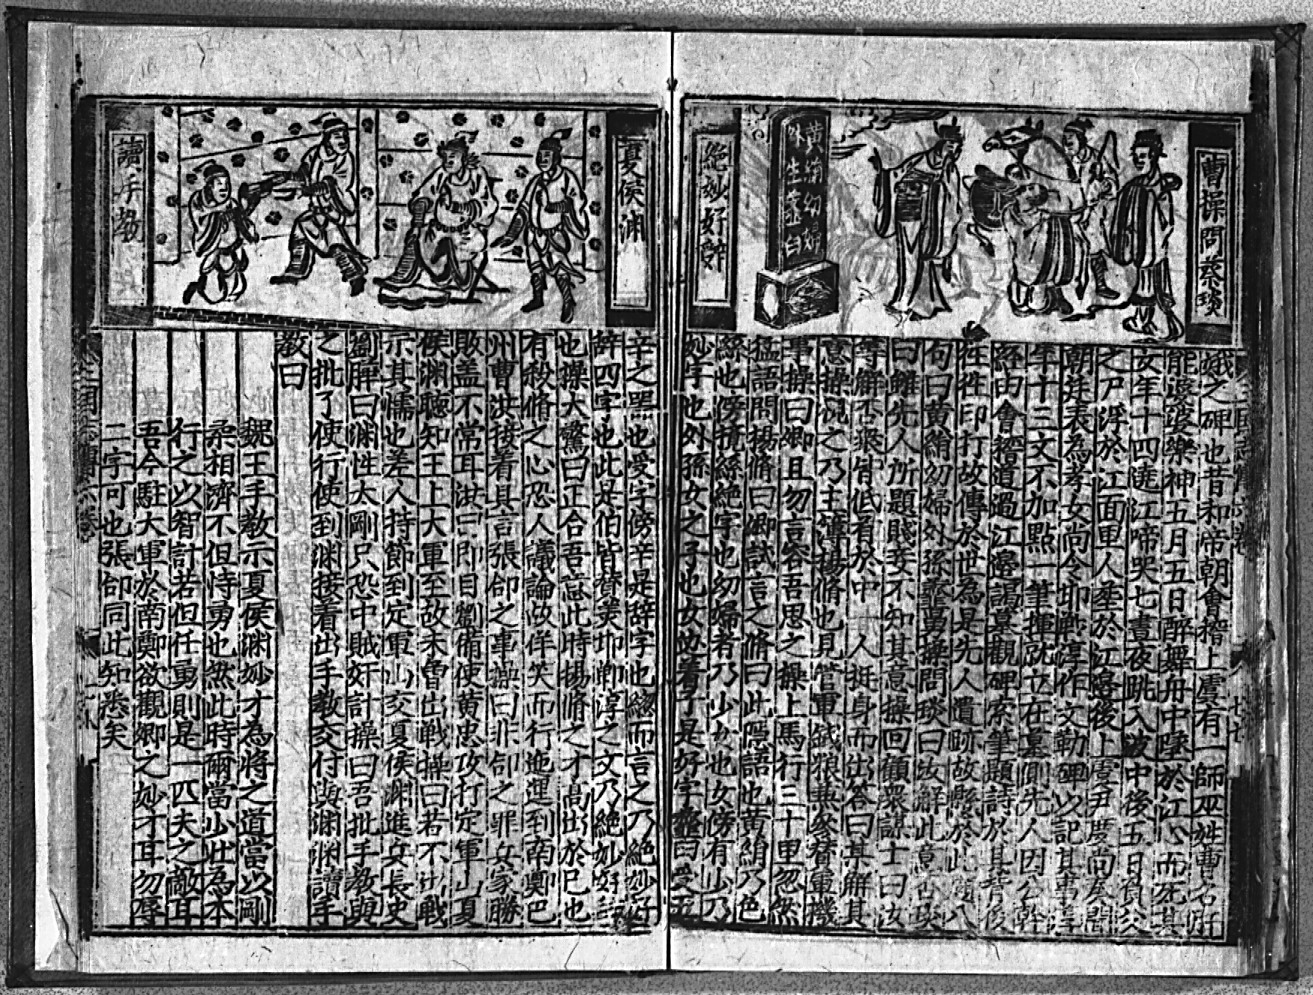 曹操問蔡琰
絕妙好辭
黃絹幼婦
外孫韲臼
娥之碑也昔和帝朝會稽上虞有一師巫姓曹名旴
能婆娑樂神五月五日醉舞舟中墮於江心而死其
女年十四遶江啼哭七晝夜跳入波中後五日負父
之尸浮於江面里人塟於江邊後上虞尹度尚奏聞
朝廷表為孝女尚令邯鄲淳作文勒碑以記其事淳
年十三文不加點一筆揮就立在墓側先人因公幹
經由會稽道過江邊謁墓觀碑索筆題詩於其背後
人牲印打故傳於世為是先人遺跡故懸於此
句曰黃絹幼婦外孫韲臼操問琰曰汝解此意否琰
曰雖先人所題賤妾不知其意操回顧衆謀士曰汝
等解不衆皆低首於中一人挺身而出答曰某解其
意操視之乃主簿楊脩也見管軍錢粮兼參賛軍機
事操曰卿且勿言容吾思之操上馬行三十里忽然
猛語問楊脩曰卿試言之脩曰此隱語也黃絹乃色
絲也傍攪絲絕字也幼婦者乃少女也女傍有少乃
妙字也外孫女之子也女傍着子是好字韲臼受五
辛之器也受字傍辛是辭字也緫而言之乃絕妙好
辭四字也此是伯皆賛美邯鄲淳之文乃絕妙好辭
也操大驚曰正合吾意此時楊脩之才高出於己也
有殺脩之心恐人議論故佯笑而行迤逞到南鄭巴
州曹洪接着具言張郃之事操曰非郃之罪女家勝
敗盖不常耳洪曰即目劉備使黃忠攻打定軍山夏
侯淵聽知王上大軍至故未魯出戰操曰若不出戰
示其懦也差人持節到定軍山交夏侯淵進女長史
劉曄曰淵性太剛只恐中賊奸計操曰吾批手教與
之批了使行使到淵接着出手教交付與淵淵讀手
教曰
魏王手教示夏侯淵妙才為將之道當以剛
柔相濟不但恃勇也然此時爾當少壯為本
行之以智計若但任勇則是一匹夫之敵耳
吾今駐大軍於南鄭欲觀卿之妙才耳勿辱
二字可也張郃同此知悉矣
夏侯淵
讀手教